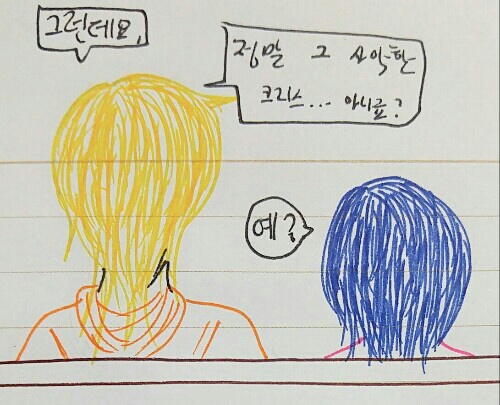 그런데요,
정말 그 사악한
크리스... 아니죠?
예?